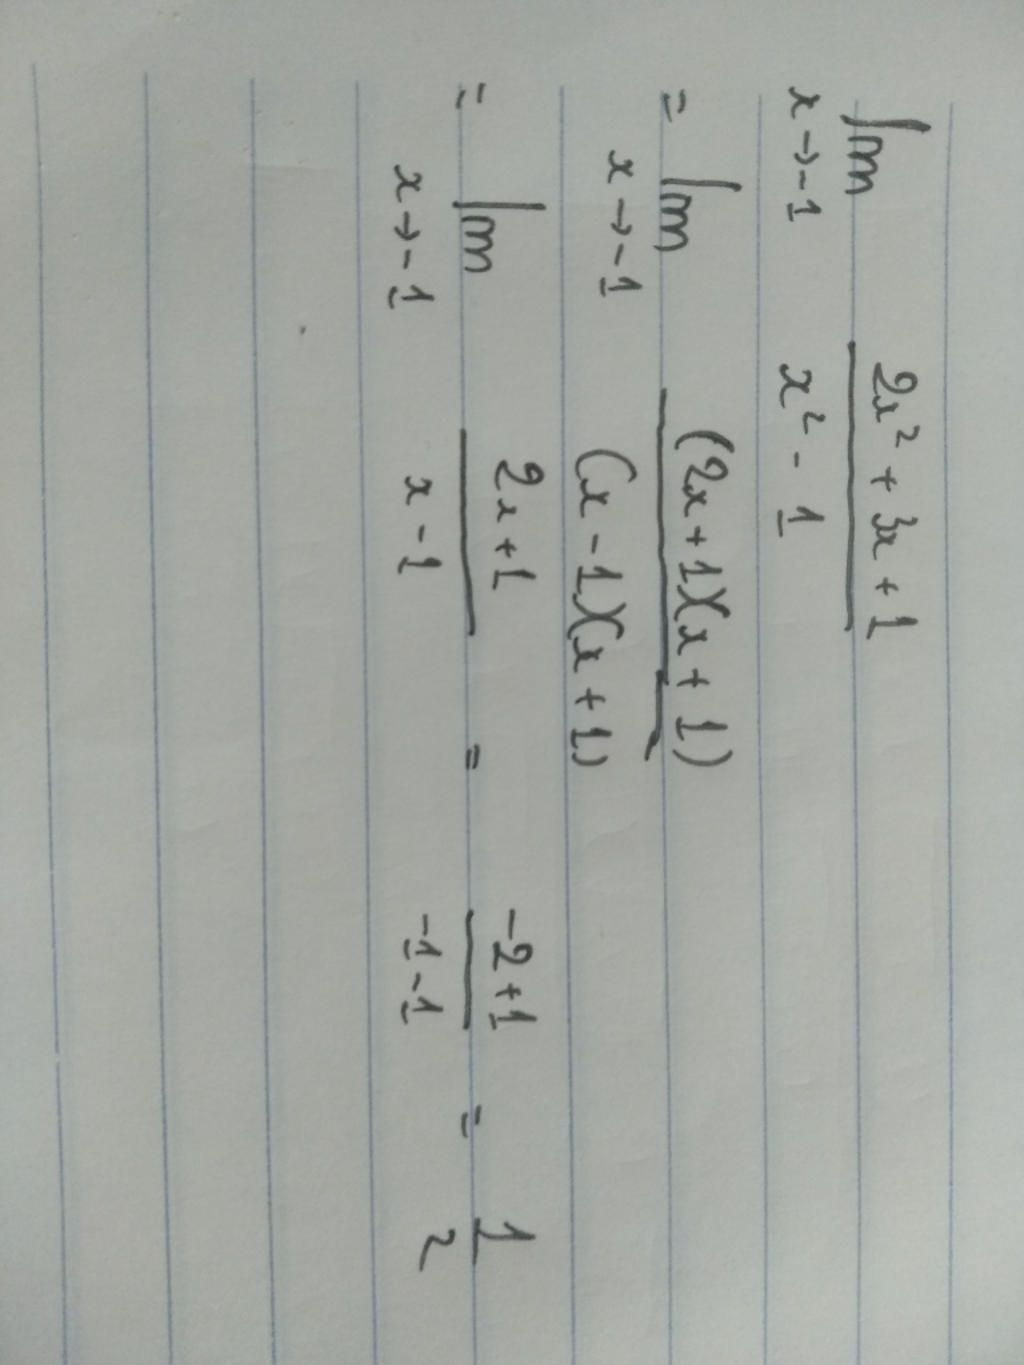 lim x→-1 2x² + 3x + 1 / x² - 1
= lim x→-1 (2x+1)(x+1) / (x-1)(x+1)
= lim x→-1 2x+1 / x-1 = -2+1 / -1-1 = 1/2